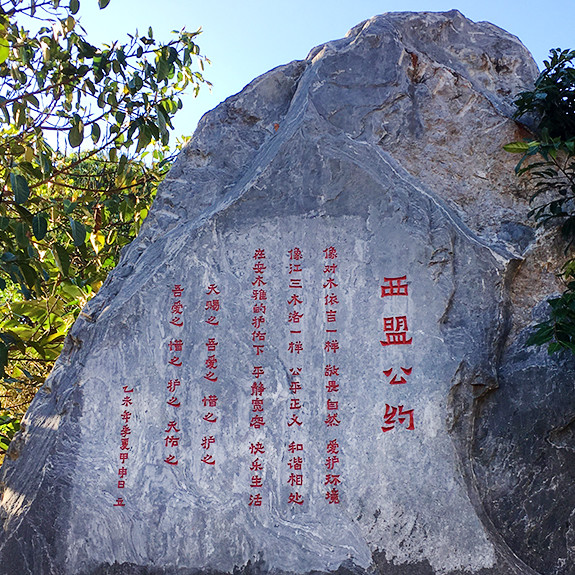 西盟公约
像对木依吉一样 敬畏自然 爱护环境
像江三木洛一样 公平正义 和谐相处
在安木雅的护佑下 平静宽容 快乐生活
天赐之 吾爱之 惜之 护之
吾爱之 惜之 护之 天佑之
乙未年季夏甲申日 立